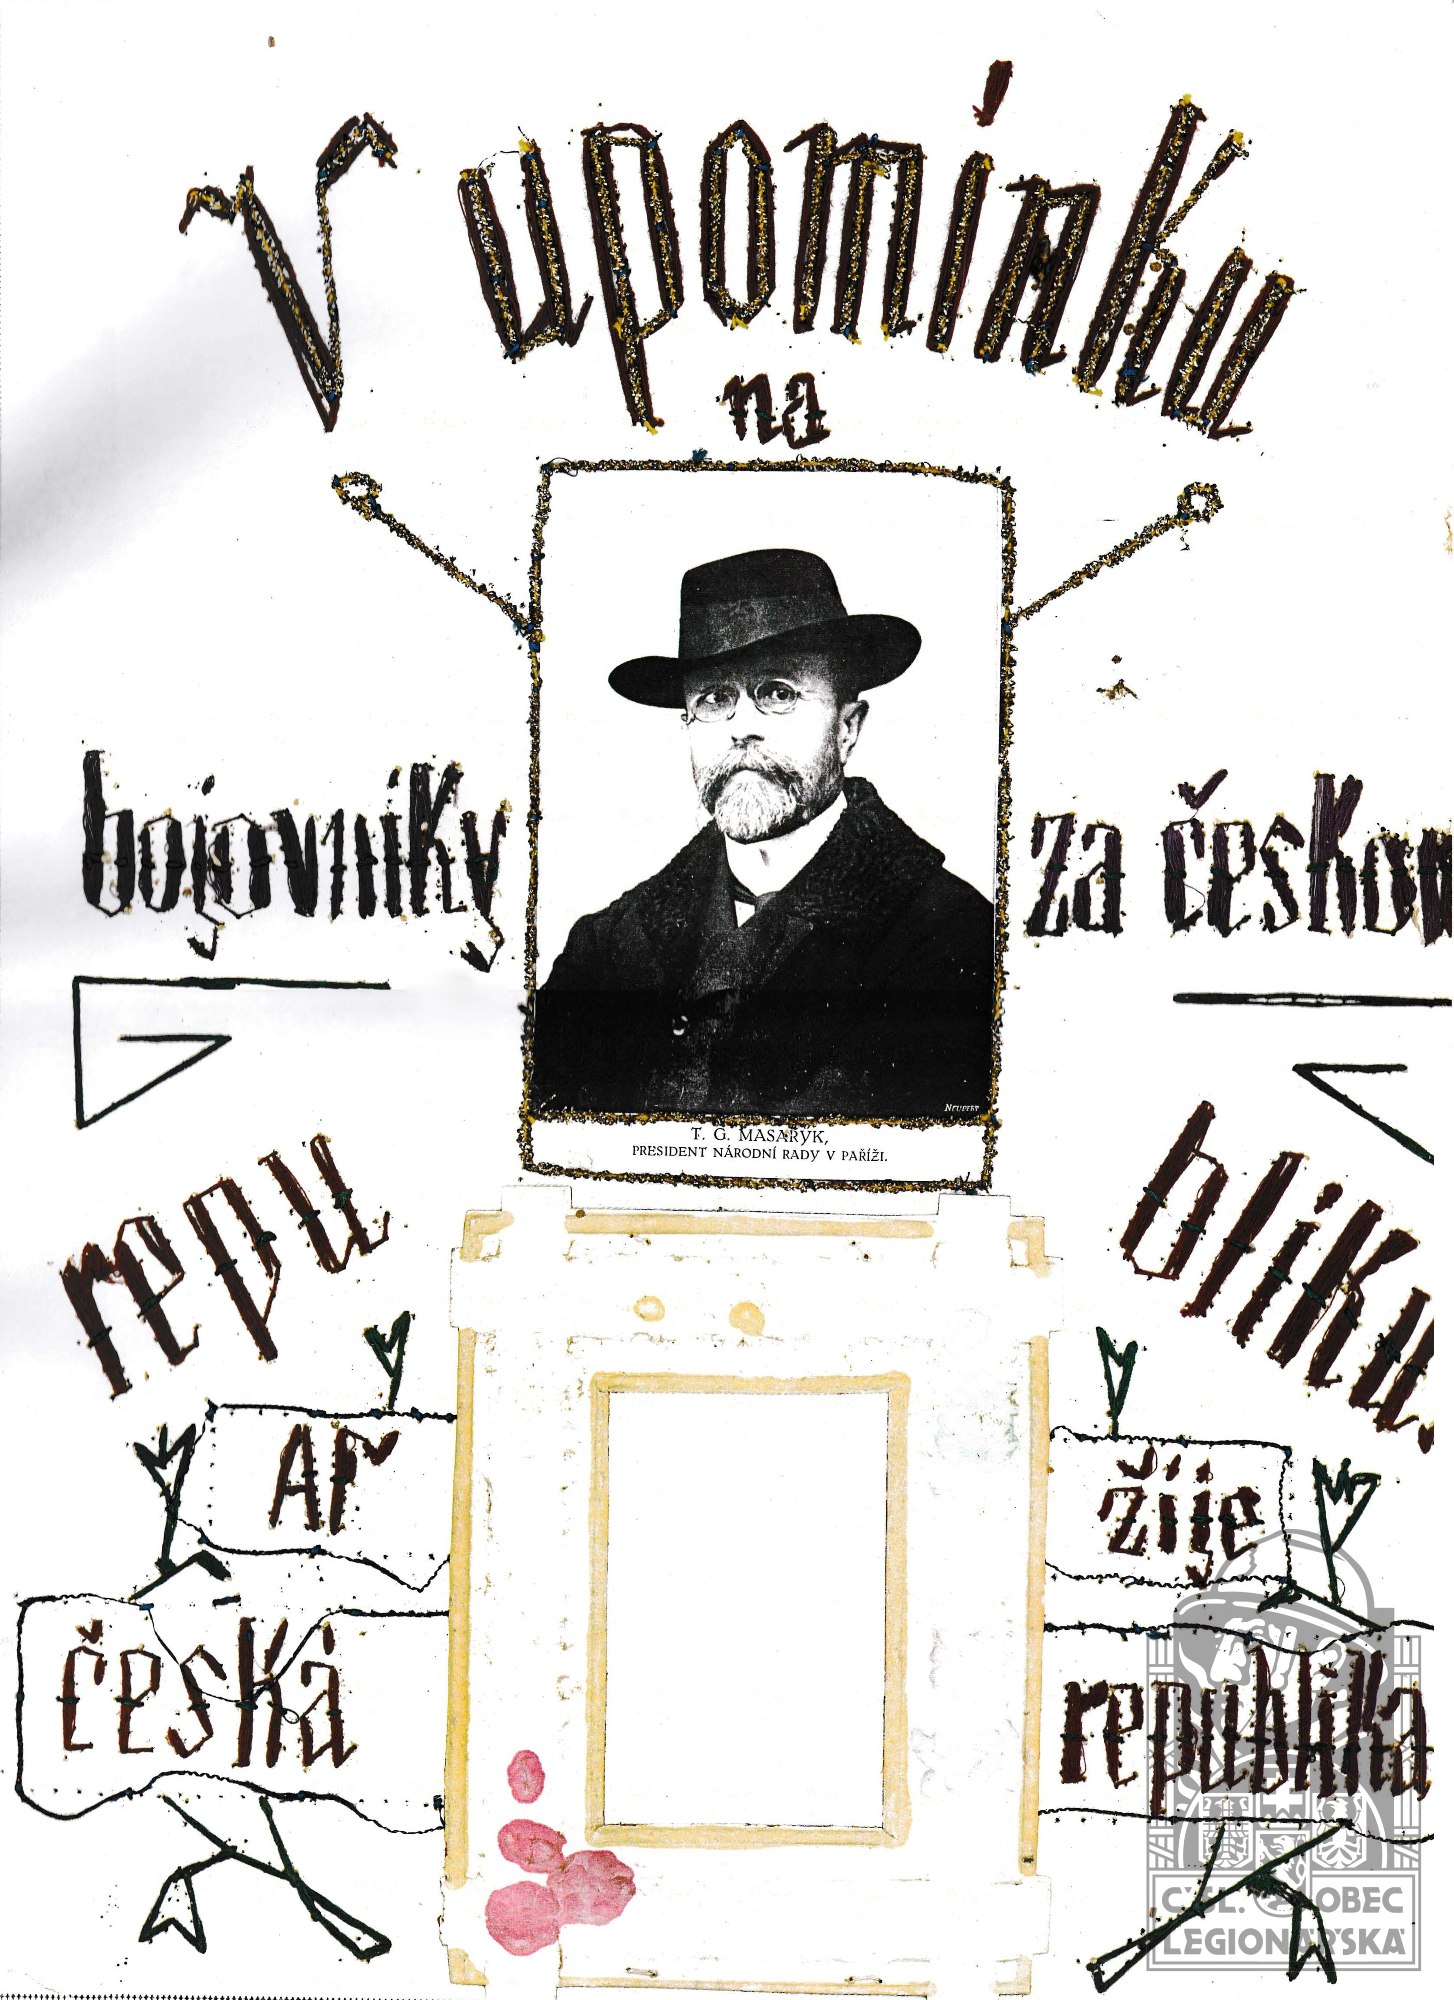 V upomínku
na
bojovníky za českou
T. G. MASARYK,
PRESIDENT NÁRODNÍ RADY V PAŘÍŽI.
repu bliku.
Ať žije
česká republika
ČSL. OBEC
LEGIONÁŘSKÁ